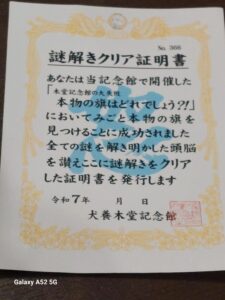 No. 366
謎解きクリア証明書
あなたは当記念館で開催した
「木堂記念館の大失態
本物の旗はどれでしょう?!」
においてみごと本物の旗を
見つけることに成功されました
全ての謎を解き明かした頭脳
を讃えここに謎解きをクリア
した証明書を発行します
令和7年 月 日
犬養木堂記念館
Galaxy A52 5G